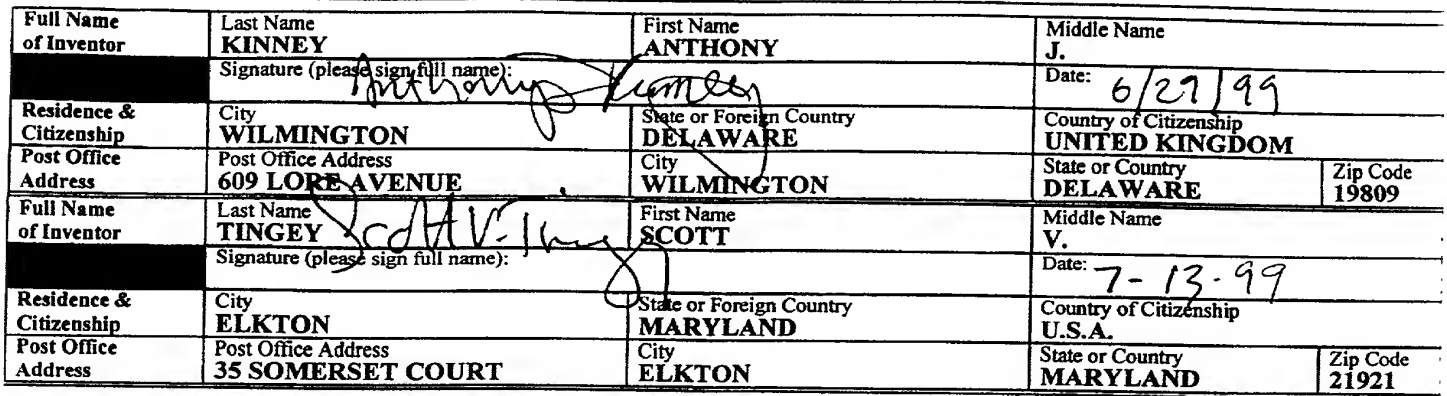 Full Name of Inventor Last Name KINNEY First Name ANTHONY Middle Name J.
Signature (please sign full name): Anthony J Kinney Date: 6/29/99
Residence & Citizenship City WILMINGTON State or Foreign Country DELAWARE Country of Citizenship UNITED KINGDOM
Post Office Address Post Office Address 609 LORE AVENUE City WILMINGTON State or Country DELAWARE Zip Code 19809
Full Name of Inventor Last Name TINGEY First Name SCOTT Middle Name V.
Signature (please sign full name): Scott V. Tingey Date: 7-13-99
Residence & Citizenship City ELKTON State or Foreign Country MARYLAND Country of Citizenship U.S.A.
Post Office Address Post Office Address 35 SOMERSET COURT City ELKTON State or Country MARYLAND Zip Code 21921